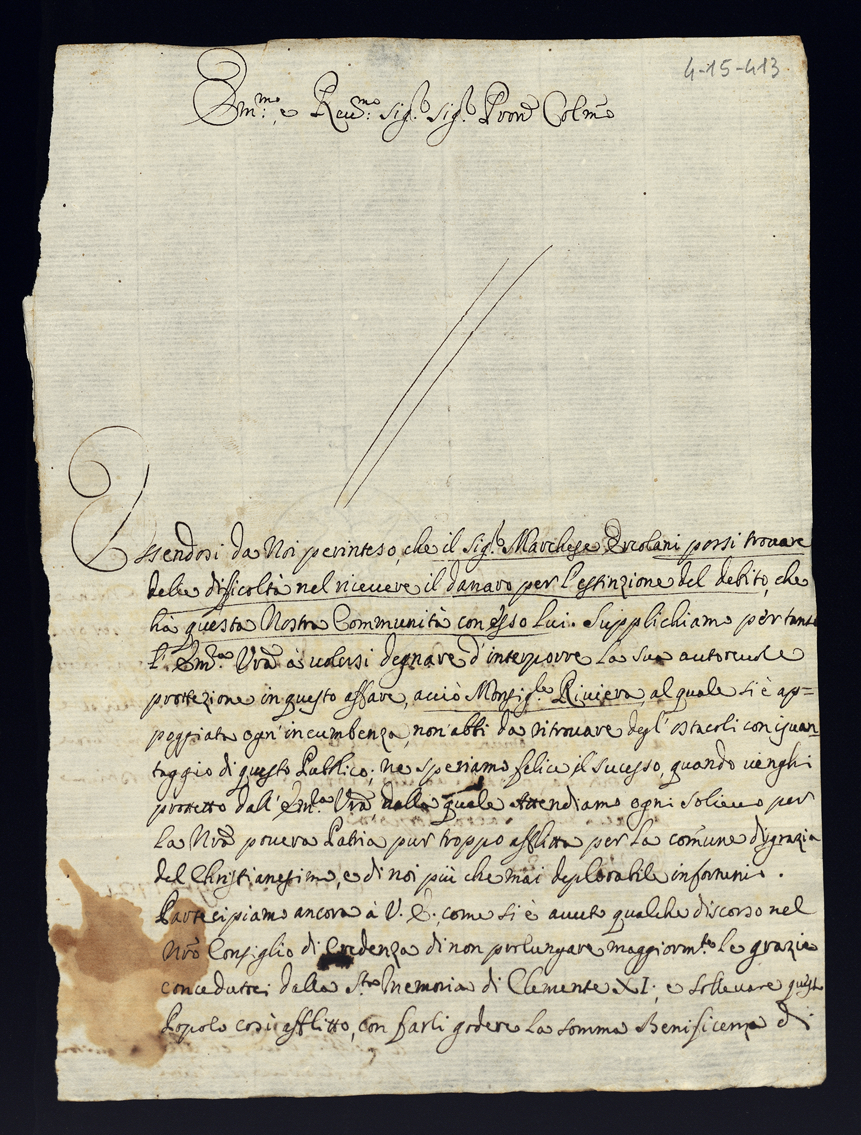 4-15-413
Em:mo e Reu:mo Sig.r Sig.r Pron Colmo
Essendosi da Noi perinteso, che il Sig.r Marchese Ercolani possi trouare
delle difficoltà nel riceuere il danaro per l'estinzione del debito, che
hà questa Nostra Communità con esso lui. Supplichiamo per tanto
l'Em.a Vra à uolersi degnare d'interporre la sua autoreuole
protezione in questo affare, acciò Monsig.re Riviera, al quale si è ap=
poggiata ogn'incumbenza, non abbi da ritrouare degl'ostacoli con isuan
taggio di questo Publico; ne speriamo felice il sucesso, quando uenghi
protetto dall'Em.a Vra dalla quale Attendiamo ogni solieuo per
la Nra pouera Patria pur troppo afflitta per la comune disgrazia
del Christianesimo, e di noi più che mai deplorabile infortunio.
Partecipiamo ancora à V. E. come si è auuto qualche discorso nel
Nro Consiglio di Credenza di non prolungare maggiorm.te le grazie
concedutteci dalla S.ta Memoria di Clemente XI; e solleuare questo
Popolo così afflitto, con farli godere la somma Benificenza di